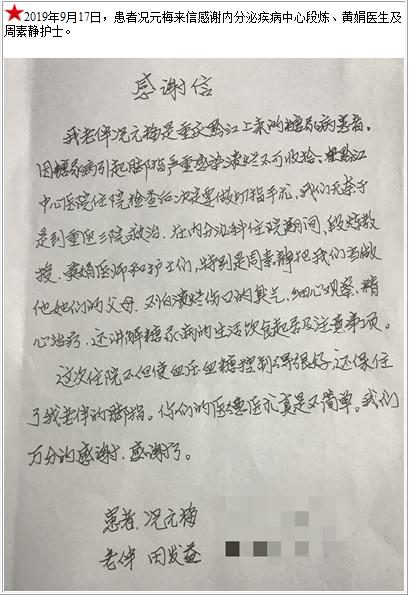 ★2019年9月17日，患者况元梅来信感谢内分泌疾病中心段炼、黄娟医生及
周素静护士。
感谢信
我老伴况元梅是重庆黔江上来的糖尿病患者。
因糖尿病引起脚指严重感染溃烂不可收拾、黔江
中心医院住院检查后决定要做切指手术，我们夫妻于
是到重医二院救治。在内分泌科住院期间，段炼教
授、黄娟医师和护士们，特别是周素静把我们当做
他她们的父母、不怕溃烂伤口的臭气，细心观察、精
心治疗、还讲解糖尿病的生活饮食起居及注意事项。
这次住院不但使血压血糖控制得很好，还保住
了我老伴的脚指。你们的医德医术真是不简单。我们
万分的感谢，感谢了。
患者，况元梅
老伴 田发益